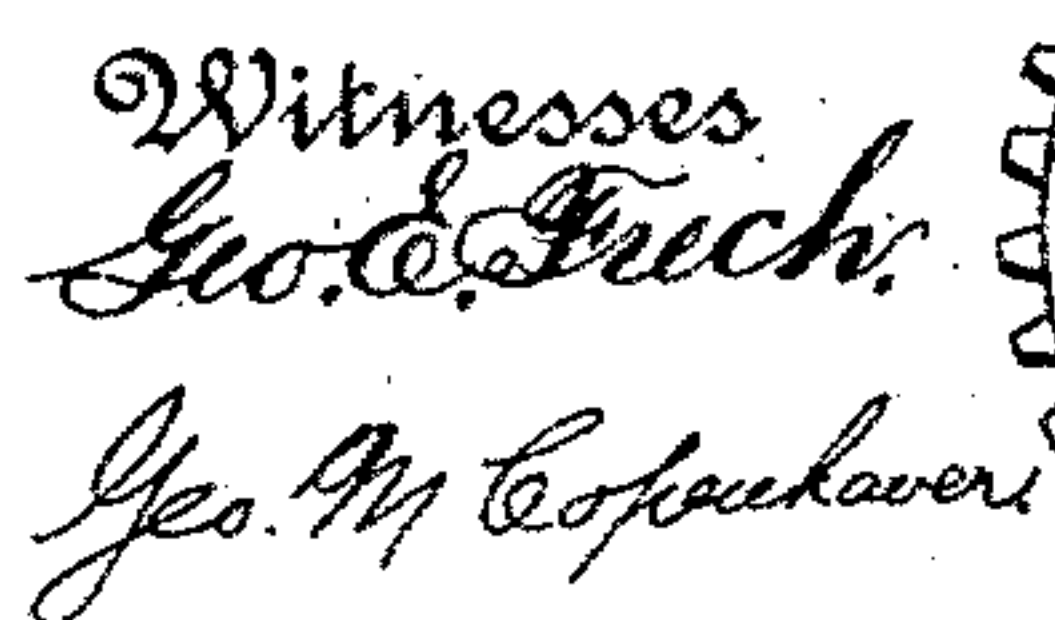 Witnesses
Geo. E. Frech.
Geo. M Copenhaver